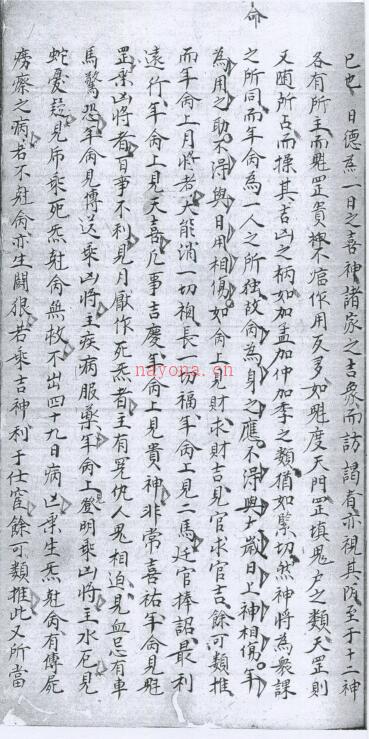 命
巳也日德為一日之喜神諸家之吉象而訪謁者亦視其陰至于十二神
各有所主而魁罡貴極不當作用反多如魁度天門罡填鬼户之類天罡則
又随所占而操其吉凶之柄如加孟加仲加季之類猶如緊切然神將為衆課
之所同而年命為一人之所獨故命為身之應不淂與太歲日上神相傷年
為用之助不淂與日用相傷如命上見財求財吉見官求官吉餘可類推
而年命上月將者大能消一切禍長一切福年命上見二馬廷官捧詔最利
遠行年命上見天喜凡事吉慶年命上見貴神非常喜祐年命見魁
罡乗凶將者百事不利見月厭作死炁者主有冤仇人鬼相迫見血忌有車
馬驚恐年命見傳送乗凶將主疾病服藥年命上登明乗凶將主水厄見
蛇憂疑見帝乗死炁尅命無救不出四十九日病凶乗生炁尅命有傳屍
癆瘵之病若不尅命亦生鬪狠若乗吉神利于仕宦餘可類推此又所當
nayona.cn